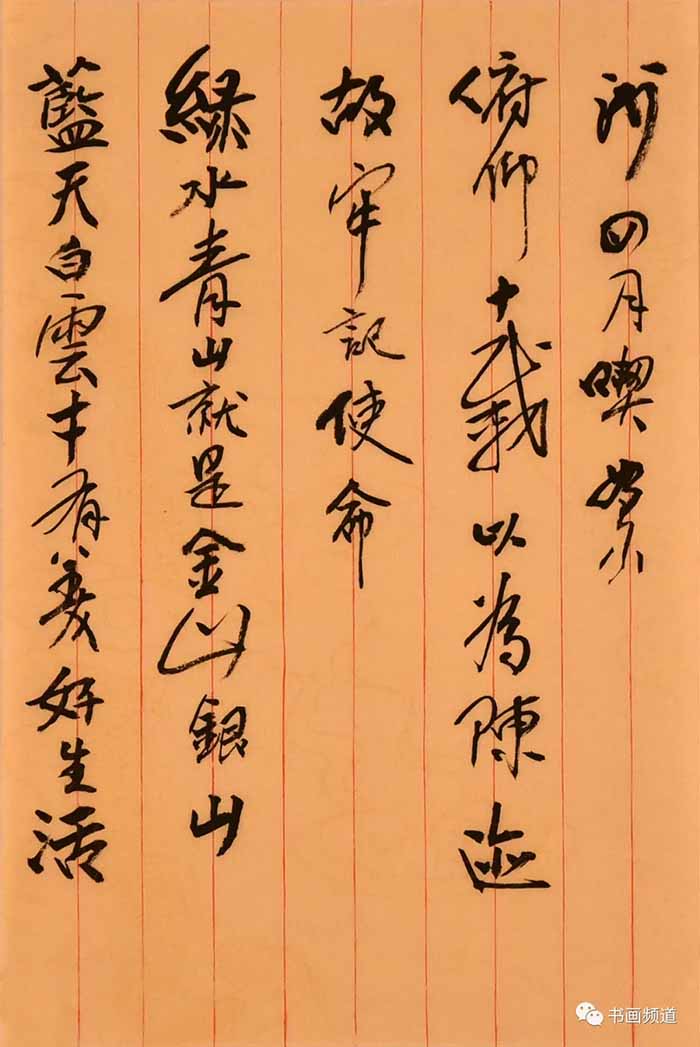 四月喫
俯仰十載以為陳迹
故牢記使命
緑水青山就是金山銀山
藍天白雲才有美好生活
书画频道